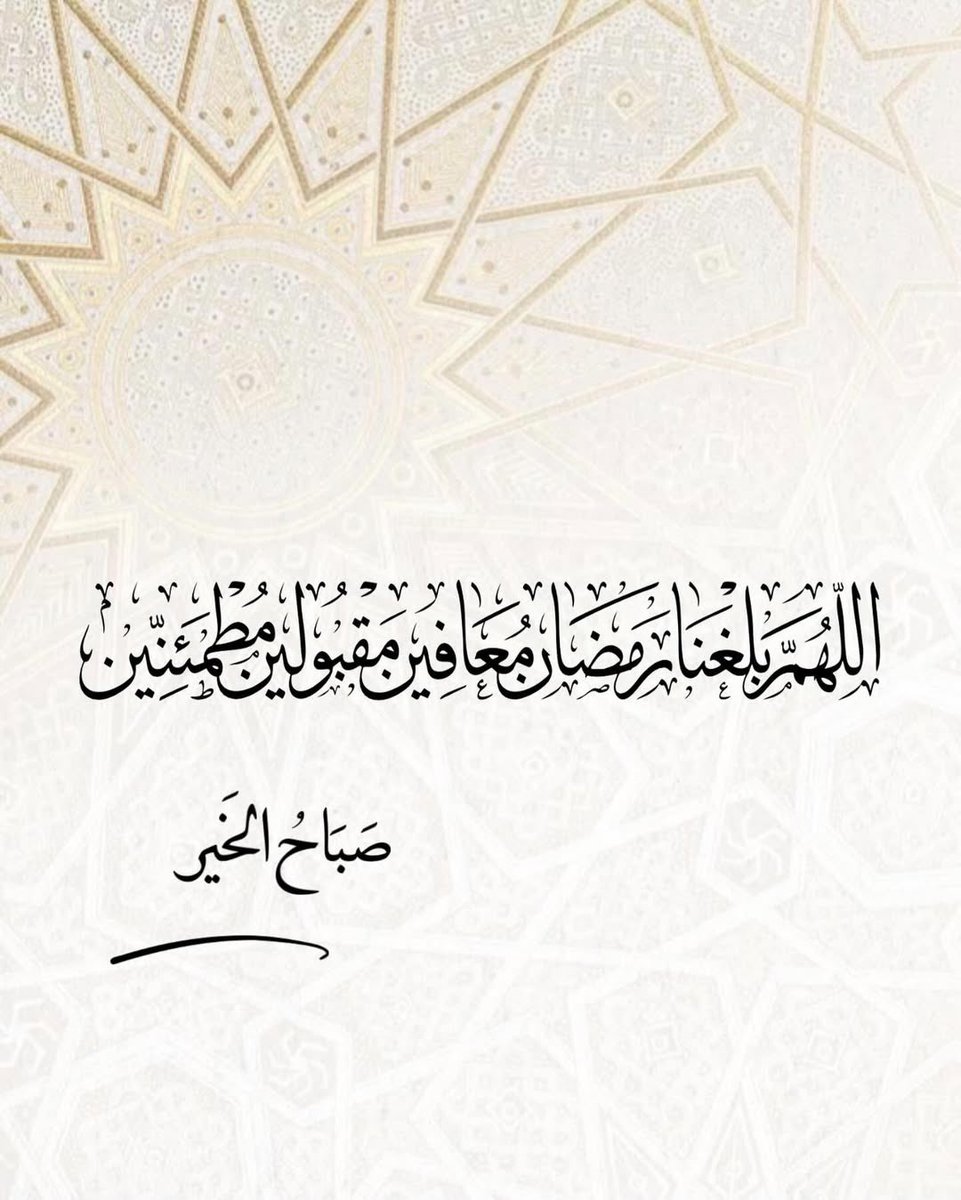 اللَّهُمَّ بَلِّغْنَا رَمَضَان مُعَافِين مَقْبُولين مُطْمَئِنِّين
صَبَاحُ الخَير